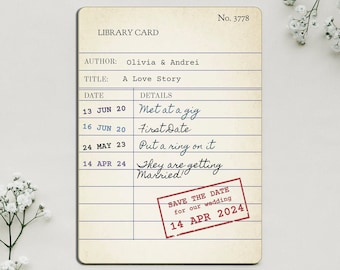 No. 3778
LIBRARY CARD
AUTHOR: Olivia & Andrei
TITLE: A Love Story
DATE DETAILS
13 JUN 20 Met at a gig
16 JUN 20 First Date
24 MAY 23 Put a ring on it
14 APR 24 They are getting
Married!
SAVE THE DATE
for our wedding
14 APR 2024